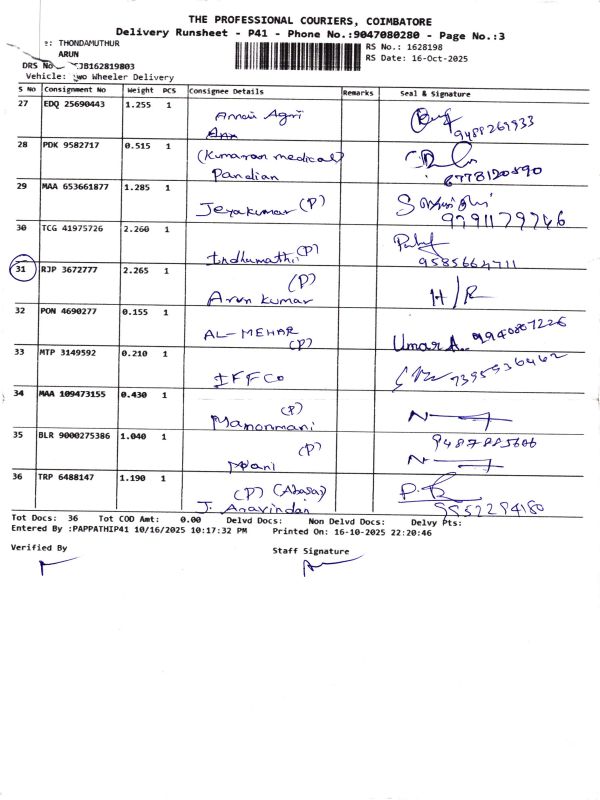 THE PROFESSIONAL COURIERS, COIMBATORE
Delivery Runsheet - P41 - Phone No.:9047080280 - Page No.:3
: THONDAMUTHUR
ARUN
RS No.: 1628198
RS Date: 16-Oct-2025
DRS No JB162819803
Vehicle: Two Wheeler Delivery
S No Consignment No Weight PCS Consignee Details Remarks Seal & Signature
27 EDQ 25690443 1.255 1 Annai Agri
9488269933
28 PDK 9582717 0.515 1 (Kumaran medical)
Pandian
29 MAA 653661877 1.285 1 Jeyakumar (P)
9791179746
30 TCG 41975726 2.260 1 Indhumathi (P)
9585664711
31 RJP 3672777 2.265 1 (P)
Arun Kumar H/R
32 PON 4690277 0.155 1 AL-MEHAR
(P) Umar A. 9940807226
33 MTP 3149592 0.210 1 IFFCo
7395936462
34 MAA 109473155 0.430 1 (P)
Manonmani
35 BLR 9000275386 1.040 1 (P)
Mani
36 TRP 6488147 1.190 1 (P)
J. Aravindan
Tot Docs: 36 Tot COD Amt: 0.00 Delvd Docs: Non Delvd Docs: Delvy Pts:
Entered By :PAPPATHIP41 10/16/2025 10:17:32 PM Printed On: 16-10-2025 22:20:46
Verified By Staff Signature